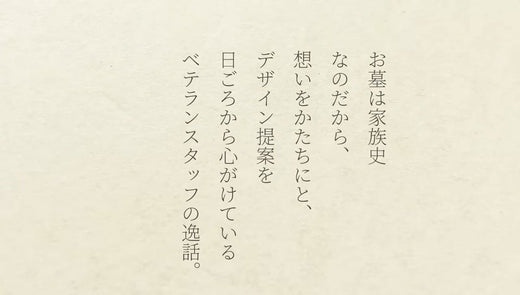 お墓は家族史
なのだから、
想いをかたちにと、
デザイン提案を
日ごろから心がけている
ベテランスタッフの逸話。